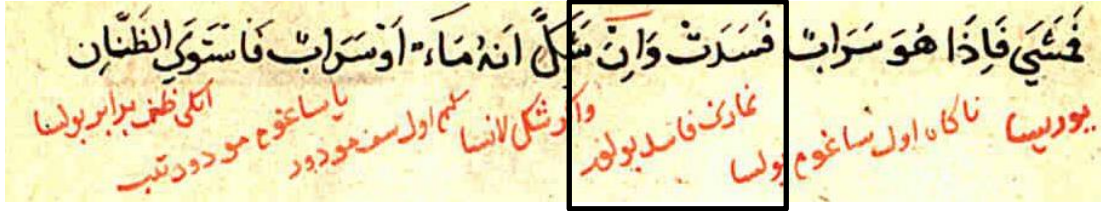 فَمَشَي فَاِذَا هُوَ سَرَابٌ فَسَدَتْ وَاِنْ شَكَّ اَنهُ مَاءٌ اَوْ سَرَابٌ فَاسْتَوَي الظَنَّانِ
يوريسا ناكاه اول ساغوم بولسا نمازى فاسد بولغر واكر شكلانسا اول سف مودور يا ساغوم مودور تيب ايكى ظنى برابر بولسا